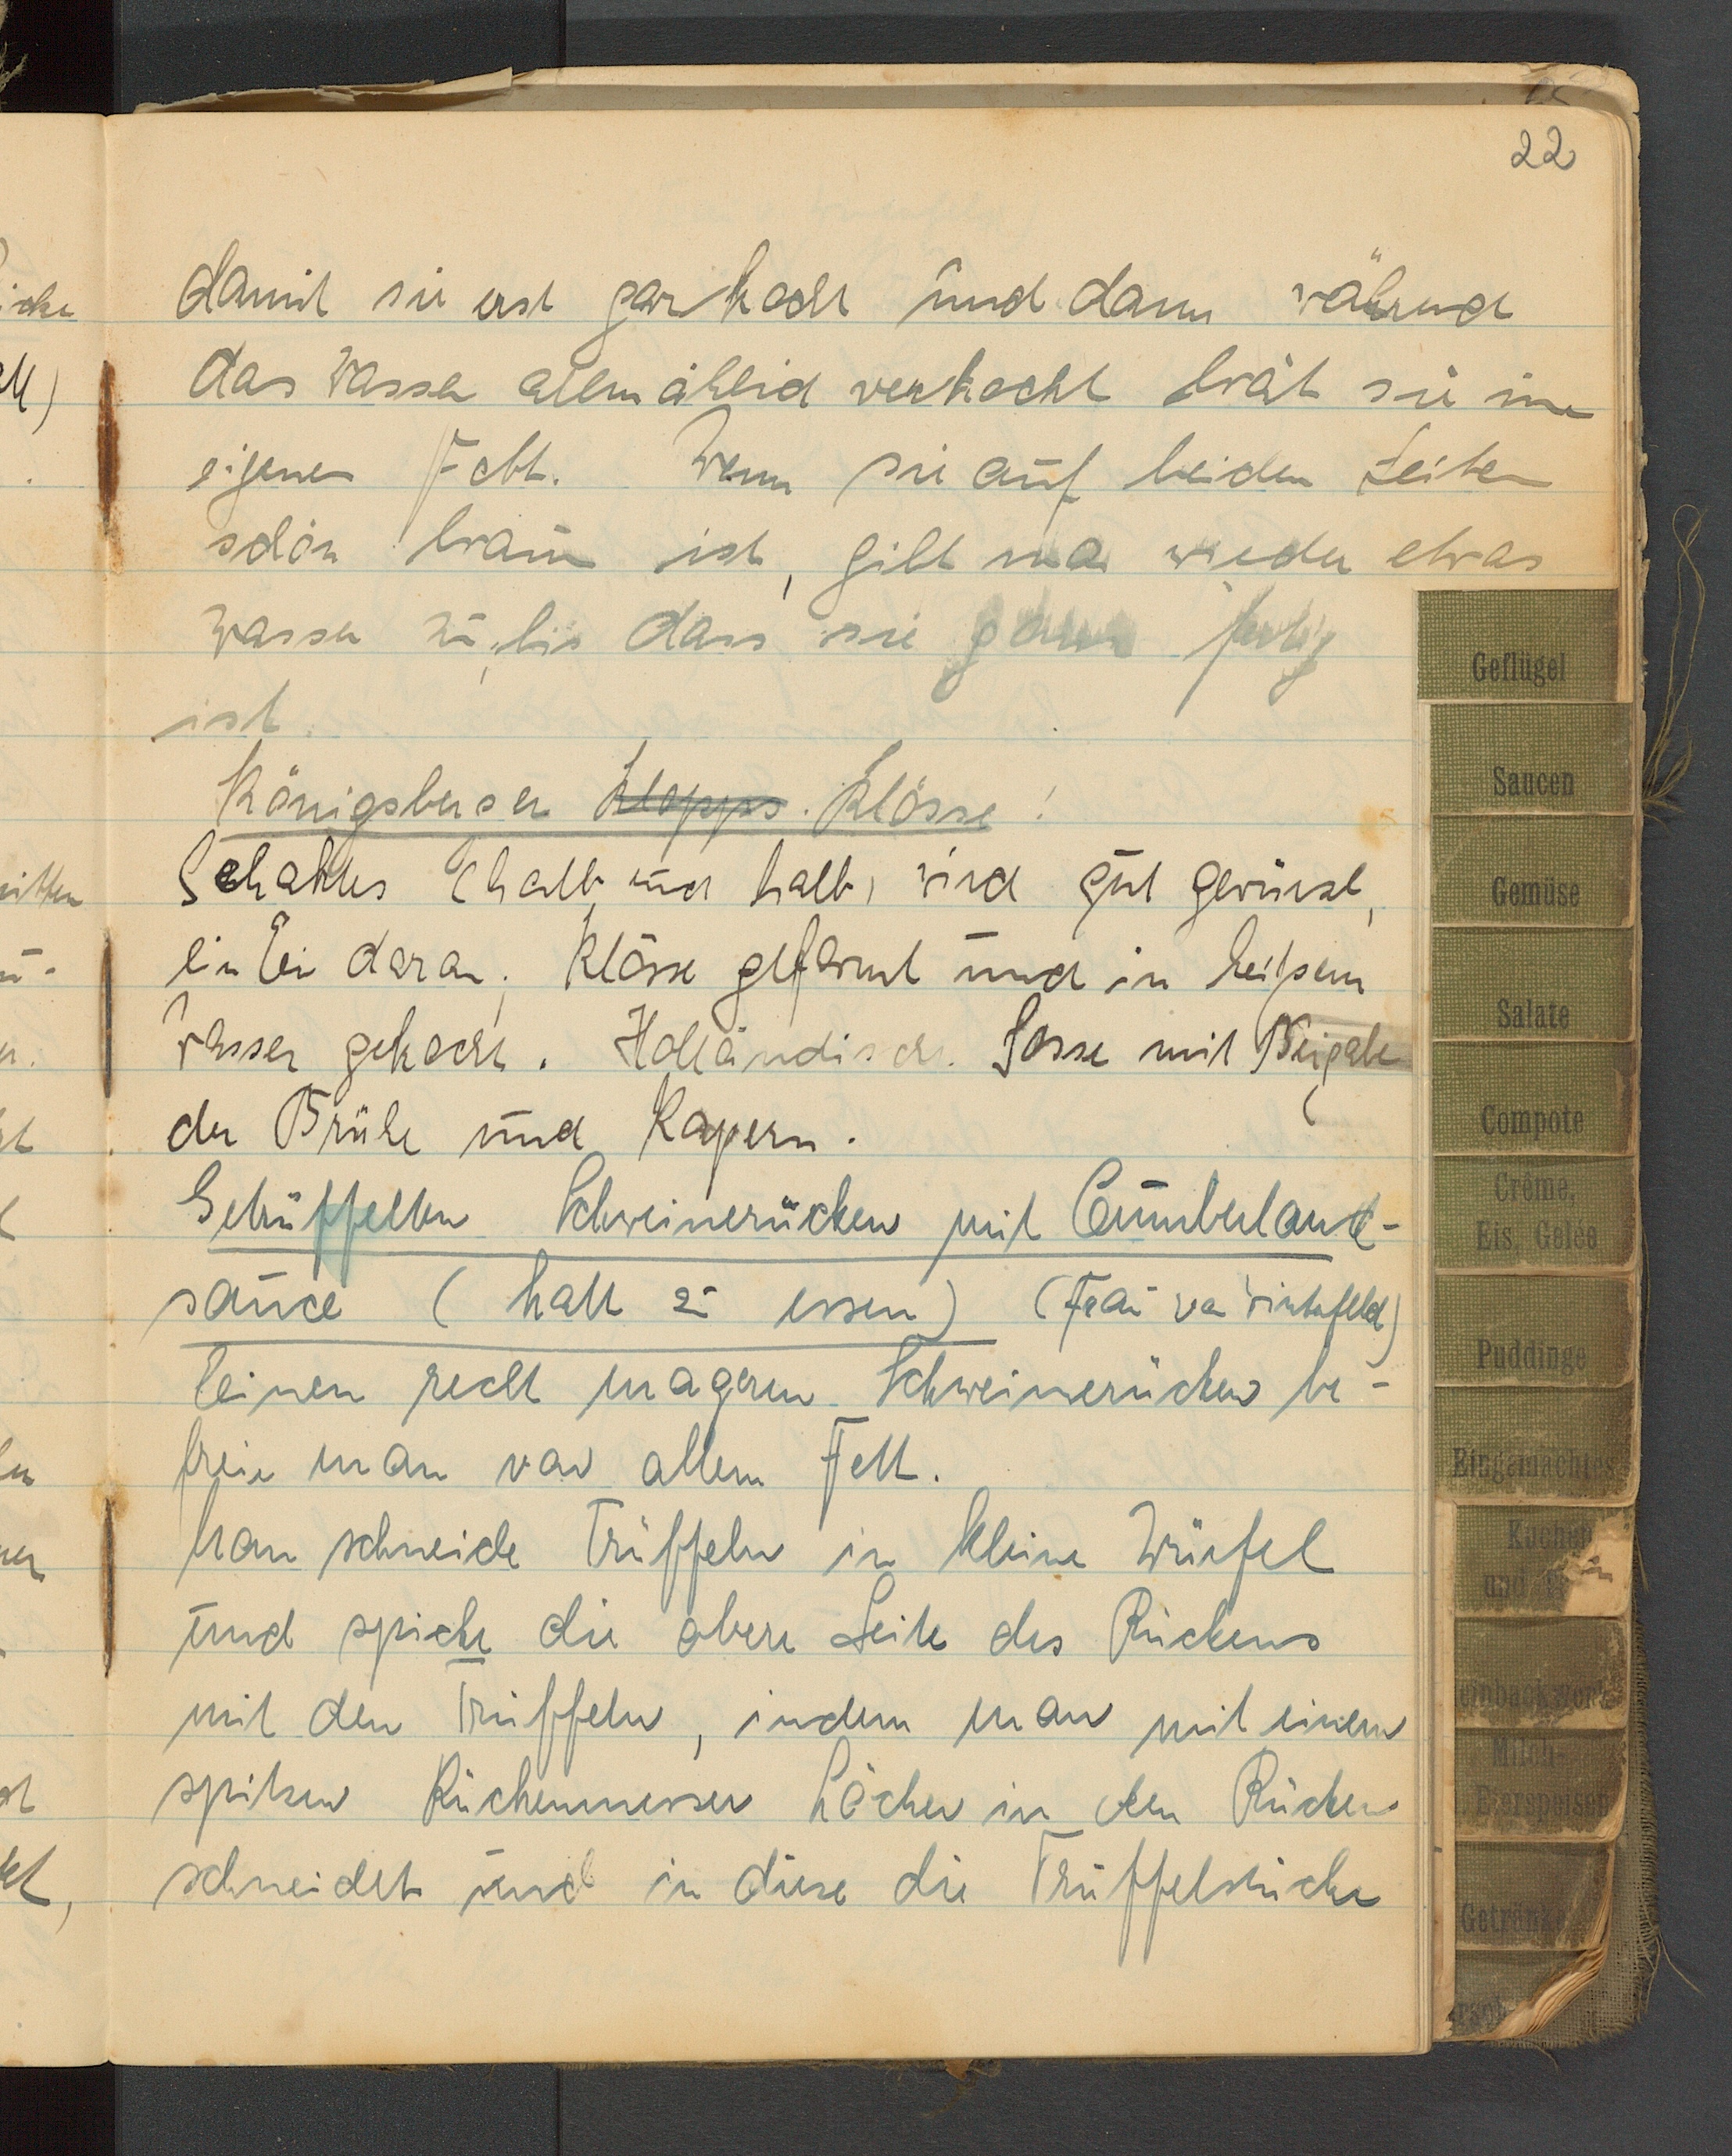 22
damit sie erst gar kocht und dann während
das Wasser allmählich verkocht brät sie im
eigenen Fett. Wenn sie auf beiden Seiten
schön braun ist, gibt man wieder etwas
Wasser zu, bis dass sie ganz fertig
ist.
Königsberger Klopps. Klösse!
Gehaktes (halb und halb, wird gut gewürzt,
ein Ei daran, Klösse geformt und in heißem
Wasser gekocht. Holländische Sosse mit Beigabe
der Brühe und Kapern.
Getrüffelten Schweinerücken mit Cumberland-
sauce (kalt zu essen) (Frau von Winterfeld)
Einen recht mageren Schweinerücken be-
freie man von allem Fett.
Man schneide Trüffeln in kleine Würfel
und spicke die obere Seite des Rückens
mit den Trüffeln, indem man mit einem
spitzen Küchenmesser Löcher in den Rücken
schneidet und in diese die Trüffelstücke
Geflügel
Saucen
Gemüse
Salate
Compote
Crême,
Eis, Gelée
Puddinge
Eingemachtes
Kuchen
und
einbackwerk
Milch-
Eierspeisen
Getränke